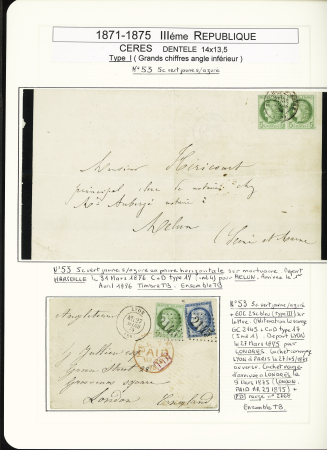 1871-1875 IIIéme REPUBLIQUE
CERES DENTELE 14x13,5
Type I ( Grands chiffres angle inférieur )
N°53 5c vert jaune s/azuré
Monsieur Héricourt
principal clerc de notaire chez
Me Auberge notaire à
Melun
(Seine et Marne)
N°53 5c vert jaune s/azuré en paire horizontale sur mortuaire. Départ
MARSEILLE le 31 Mars 1876 CàD type 17 pour MELUN. Arrivée le 1er
Avril 1876 Timbre TB. Ensemble TB
Angleterre
Mr Jullien
Green Street
Grosvenor Square
London England
PAID
N°53 5c vert jaune s/azuré
+ 60C 25c bleu (type III) sur
lettre. Oblitération losange
GC 2145 + CàD type 17
(Ind 1). Départ LYON
le 27 Mars 1875 pour
LONDRES. Cachet convoyeur
LYON à PARIS le 27/03/1875
au verso. Cachet rouge
d'arrivée à LONDRES le
LONDON
PAID 1875) +
PD rouge n°
Ensemble TB